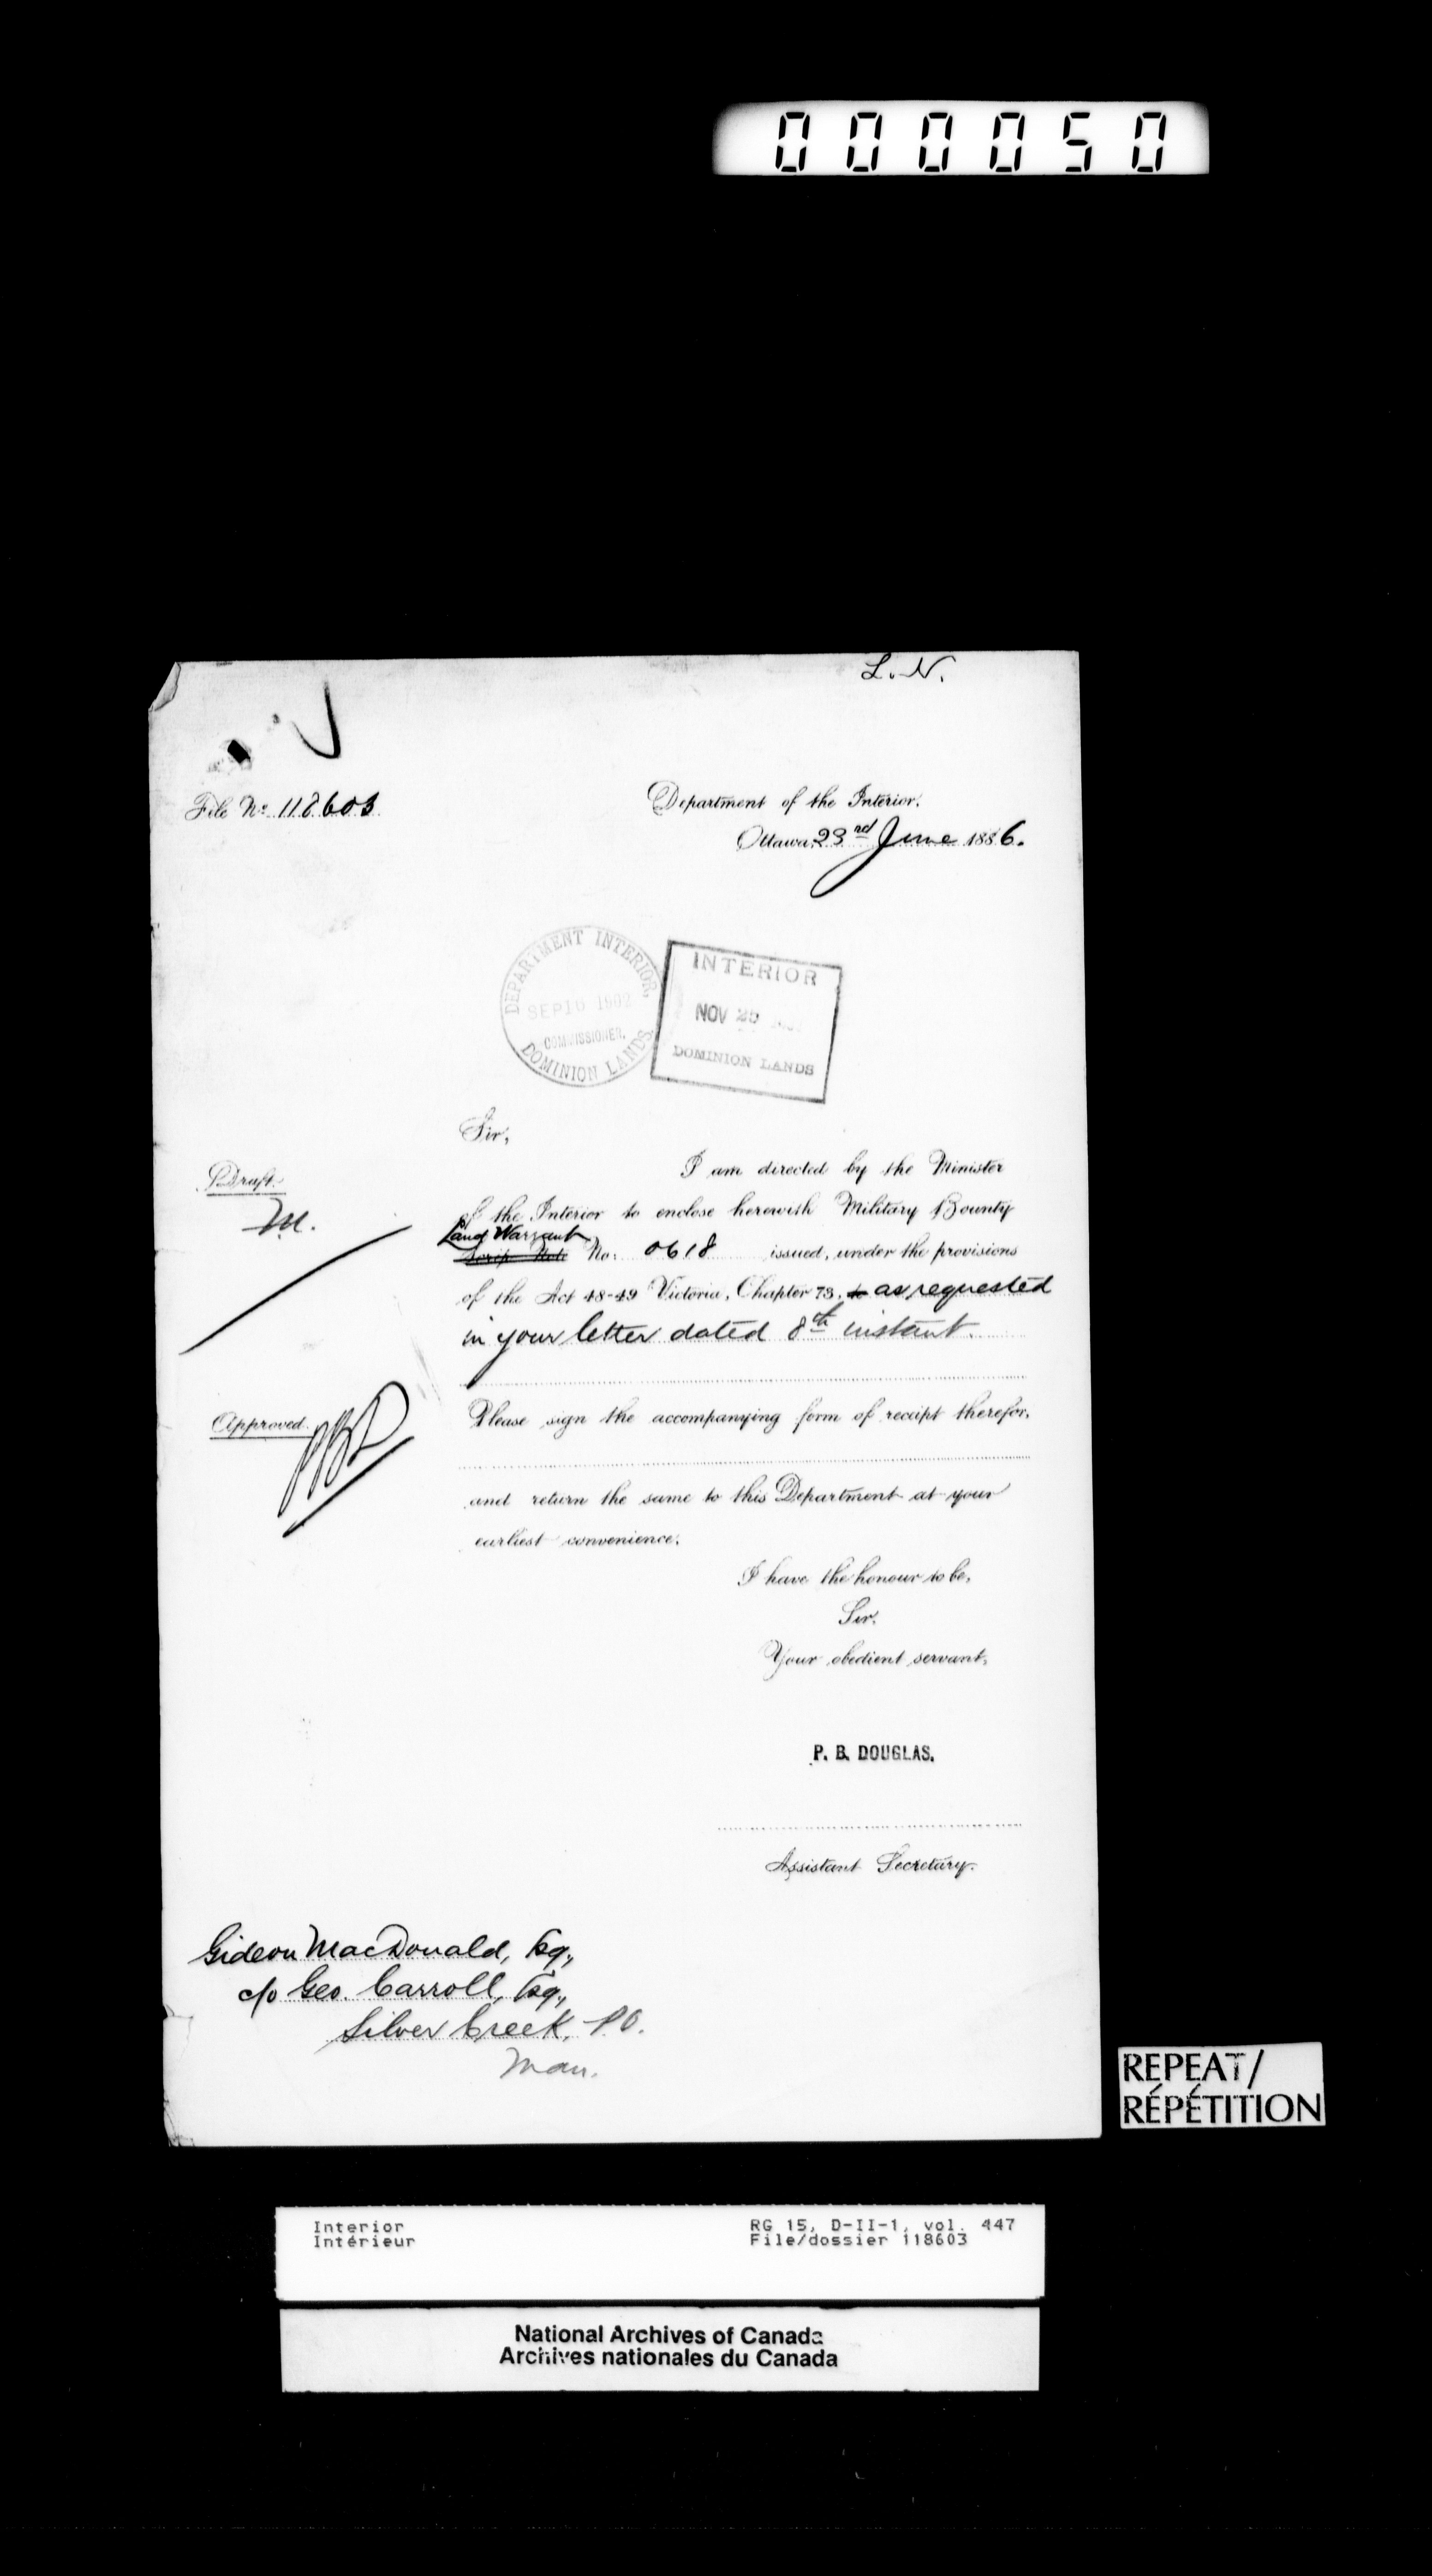 000050
L. N.
File No. 118603
Department of the Interior,
Ottawa, 23rd June 1886.
DEPARTMENT INTERIOR,
SEP 10 1902
COMMISSIONER,
DOMINION LANDS
INTERIOR
NOV 25
DOMINION LANDS
Sir,
I am directed by the Minister
Draft.
M.
of the Interior to enclose herewith Military Bounty
Land Warrant
Scrip Note No: 0618 issued, under the provisions
of the Act 48-49 Victoria, Chapter 73, to as requested
in your letter dated 8th instant.
Approved.
PBD
Please sign the accompanying form of receipt therefor,
and return the same to this Department at your
earliest convenience.
I have the honour to be,
Sir,
Your obedient servant,
P. B. DOUGLAS.
Assistant Secretary.
Gideon MacDonald, Esq.,
c/o Geo. Carroll, Esq.,
Silver Creek, P.O.
Man.
REPEAT/
RÉPÉTITION
Interior
Intérieur
RG 15, D-II-1, vol. 447
File/dossier 118603
National Archives of Canada
Archives nationales du Canada